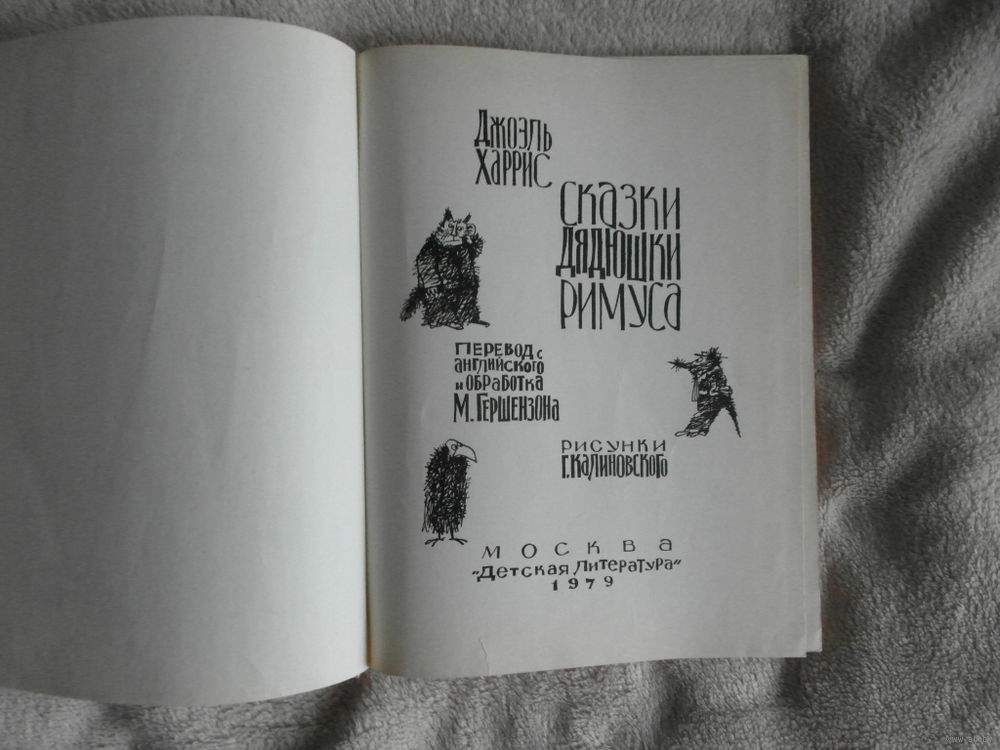 Джоэль
Харрис
Сказки
дядюшки
Римуса
Перевод с
английского
и обработка
М. Гершензона
Рисунки
Г. Калиновского
Москва
"Детская Литература"
1979